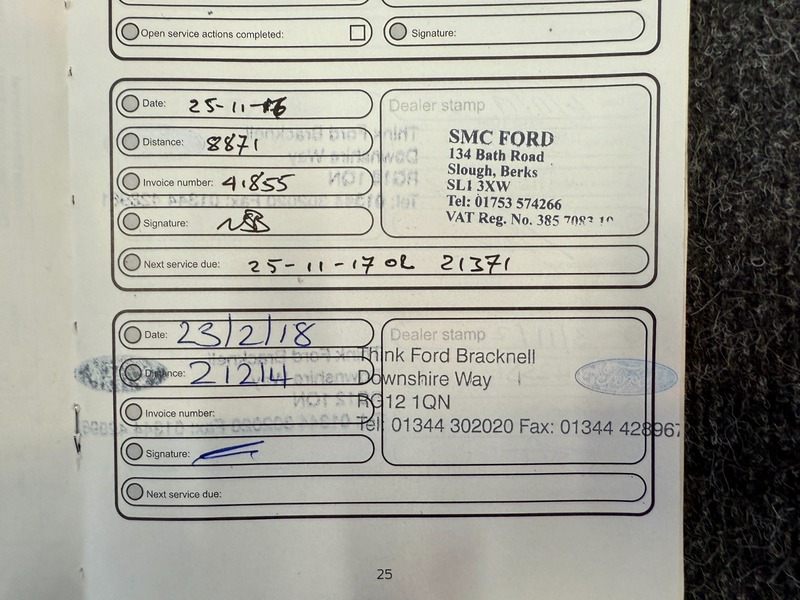 Open service actions completed:
Signature:
Date: 25-11-16
Distance: 8871
Invoice number: 41855
Signature:
Next service due: 25-11-17 OR 21371
Dealer stamp
SMC FORD
134 Bath Road
Slough, Berks
SL1 3XW
Tel: 01753 574266
VAT Reg. No. 385 7083
Date: 23/2/18
Distance: 21214
Invoice number:
Signature:
Next service due:
Dealer stamp
Think Ford Bracknell
Downshire Way
RG12 1QN
Tel: 01344 302020 Fax: 01344 428967
25